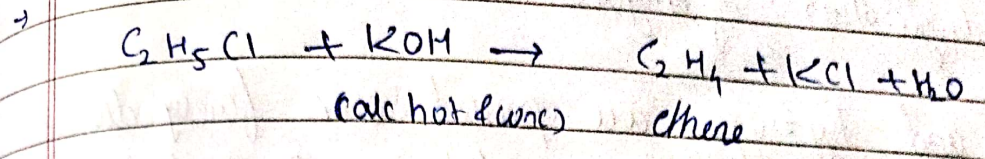 →
C₂H₅Cl + KOH → C₂H₄ + KCl + H₂O
(alc hot & conc) ethene